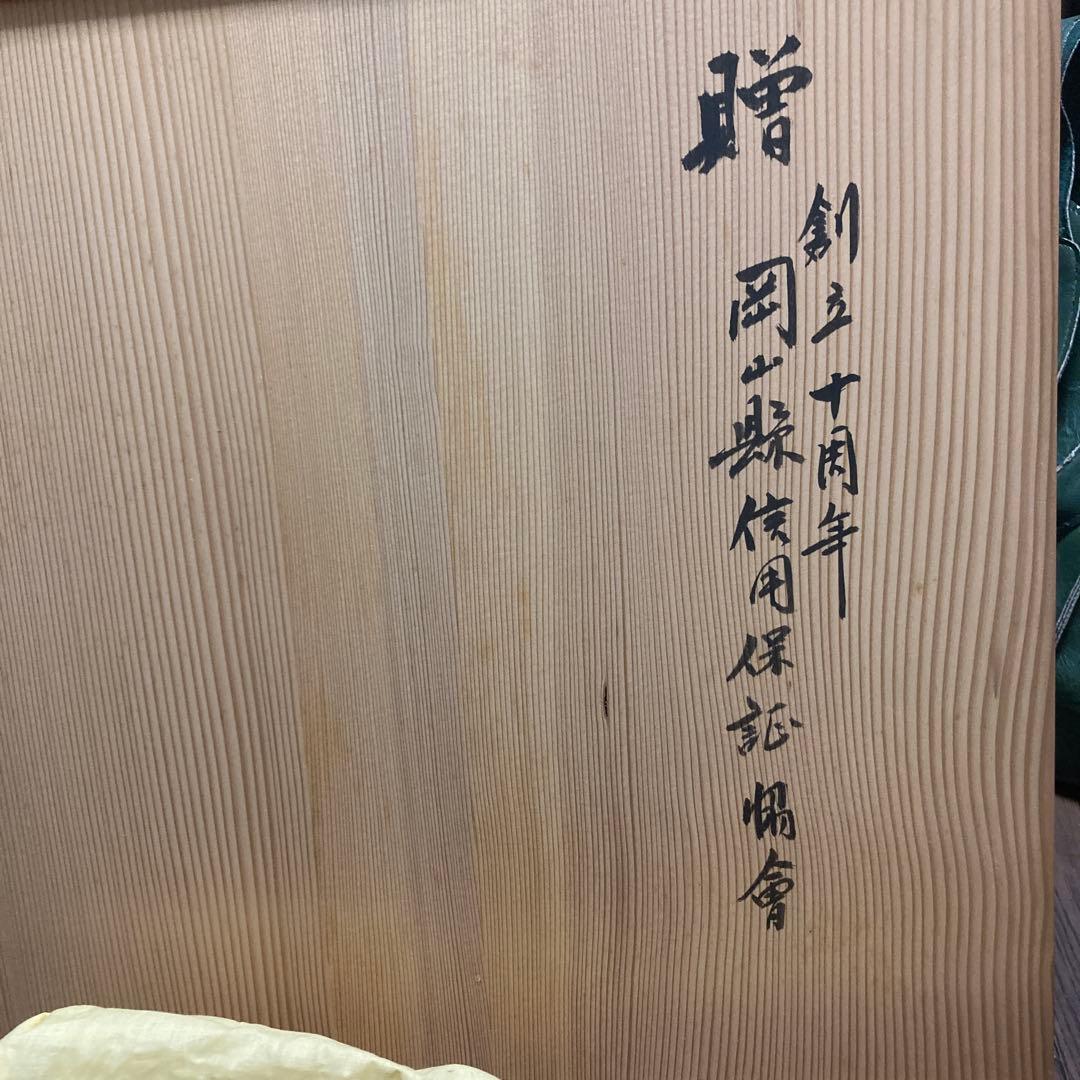 贈
創立十周年
岡山縣信用保証協會